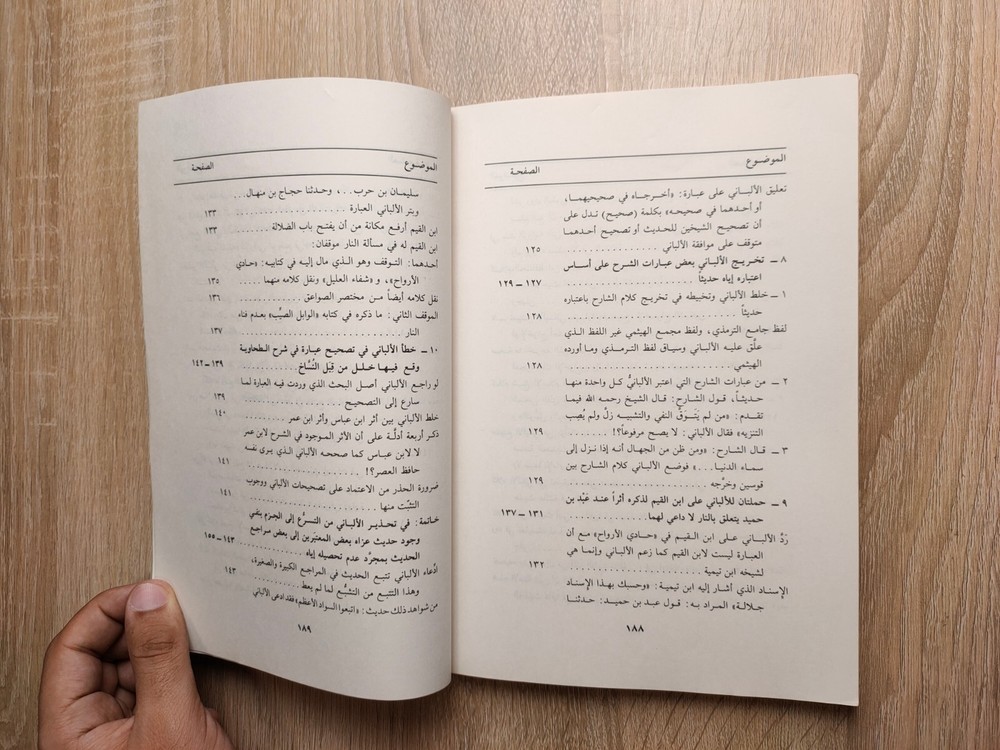 الموضوع الصفحة
تعليق الألباني على عبارة: «أخرجاه في صحيحيهما،
أو أحدهما في صحيحه» بكلمة (صحيح) تدل على
أن تصحيح الشيخين للحديث أو تصحيح أحدهما
متوقف على موافقة الألباني ................ ١٢٥
٨ ــ تخريج الألباني بعض عبارات الشرح على أساس
اعتباره إياه حديثاً ................ ١٢٧ ــ ١٢٩
١ ــ خلط الألباني وتخبيطه في تخريج كلام الشارح باعتباره
حديثاً ................ ١٢٨
لفظ جامع الترمذي، ولفظ مجمع الهيثمي غير اللفظ الذي
علَّق عليه الألباني وسياق لفظ الترمذي وما أورده
الهيثمي ................ ١٢٨
٢ ــ من عبارات الشارح التي اعتبر الألبانيُّ كل واحدة منها
حديثاً، قول الشارح: قال الشيخ رحمه الله فيما
تقدم: «من لم يَتَوقَّ النفي والتشبيه زلَّ ولم يُصِب
التنزيه» فقال الألباني: لا يصح مرفوعاً؟! ........ ١٢٩
٣ ــ قال الشارح: «ومن ظن من الجهال أنه إذا نزل إلى
سماء الدنيا...» فوضع الألباني كلام الشارح بين
قوسين وخرَّجه ................ ١٢٩
٩ ــ حملتان للألباني على ابن القيم لذكره أثراً عند عَبْد بن
حميد يتعلق بالنار لا داعي لهما ........ ١٣١ ــ ١٣٧
رَدُّ الألباني على ابن القيم في «حادي الأرواح» مع أن
العبارة ليست لابن القيم كما زعم الألباني وإنما هي
لشيخه ابن تيمية ................ ١٣٢
الإسناد الذي أشار إليه ابن تيمية: «وحسبك بهذا الإسناد
جلالة» المراد به: قول عبد بن حميد: حدثنا
١٨٨
الموضوع الصفحة
سليمان بن حرب..، وحدثنا حجاج بن منهال...
وبتر الألباني العبارة ................ ١٣٣
ابن القيم أرفع مكانة من أن يفتح باب الضلالة ........ ١٣٣
ابن القيم له في مسألة النار موقفان:
أحدهما: التوقف وهو الذي مال إليه في كتابيه: «حادي
الأرواح»، و«شفاء العليل» ونقل كلامه منهما ..... ١٣٥
نقل كلامه أيضاً من مختصر الصواعق ............ ١٣٦
الموقف الثاني: ما ذكره في كتابه «الوابل الصيِّب» بعدم فناء
النار ................ ١٣٧
١٠ ــ خطأ الألباني في تصحيح عبارة في شرح الطحاوية
وقع فيها خلل من قِبَل النُّسَّاخ ........ ١٣٩ ــ ١٤٢
لو راجع الألباني أصل البحث الذي وردت فيه العبارة لما
سارع إلى التصحيح ................ ١٣٩
خلط الألباني بين أثر ابن عباس وأثر ابن عمر ........ ١٤٠
ذكر أربعة أدلَّة على أن الأثر الموجود في الشرح لابن عمر
لا لابن عباس كما صححه الألباني الذي يرى نفسه
حافظ العصر؟! ................ ١٤١
ضرورة الحذر من الاعتماد على تصحيحات الألباني ووجوب
التثبّت منها ................ ١٤١
خاتمة: في تحذير الألباني من التسرُّع إلى الجزم بنفي
وجود حديث عزاه بعض المعتبَرين إلى بعض مراجع
الحديث بمجرَّد عدم تحصيله إياه ........ ١٤٣ ــ ١٥٥
ادِّعاء الألباني تتبع الحديث في المراجع الكبيرة والصغيرة،
وهذا التتبع من التشبُّع لما لم يعط ............ ١٤٣
من شواهد ذلك حديث: «اتبعوا السواد الأعظم» فقد ادعى الألباني
١٨٩